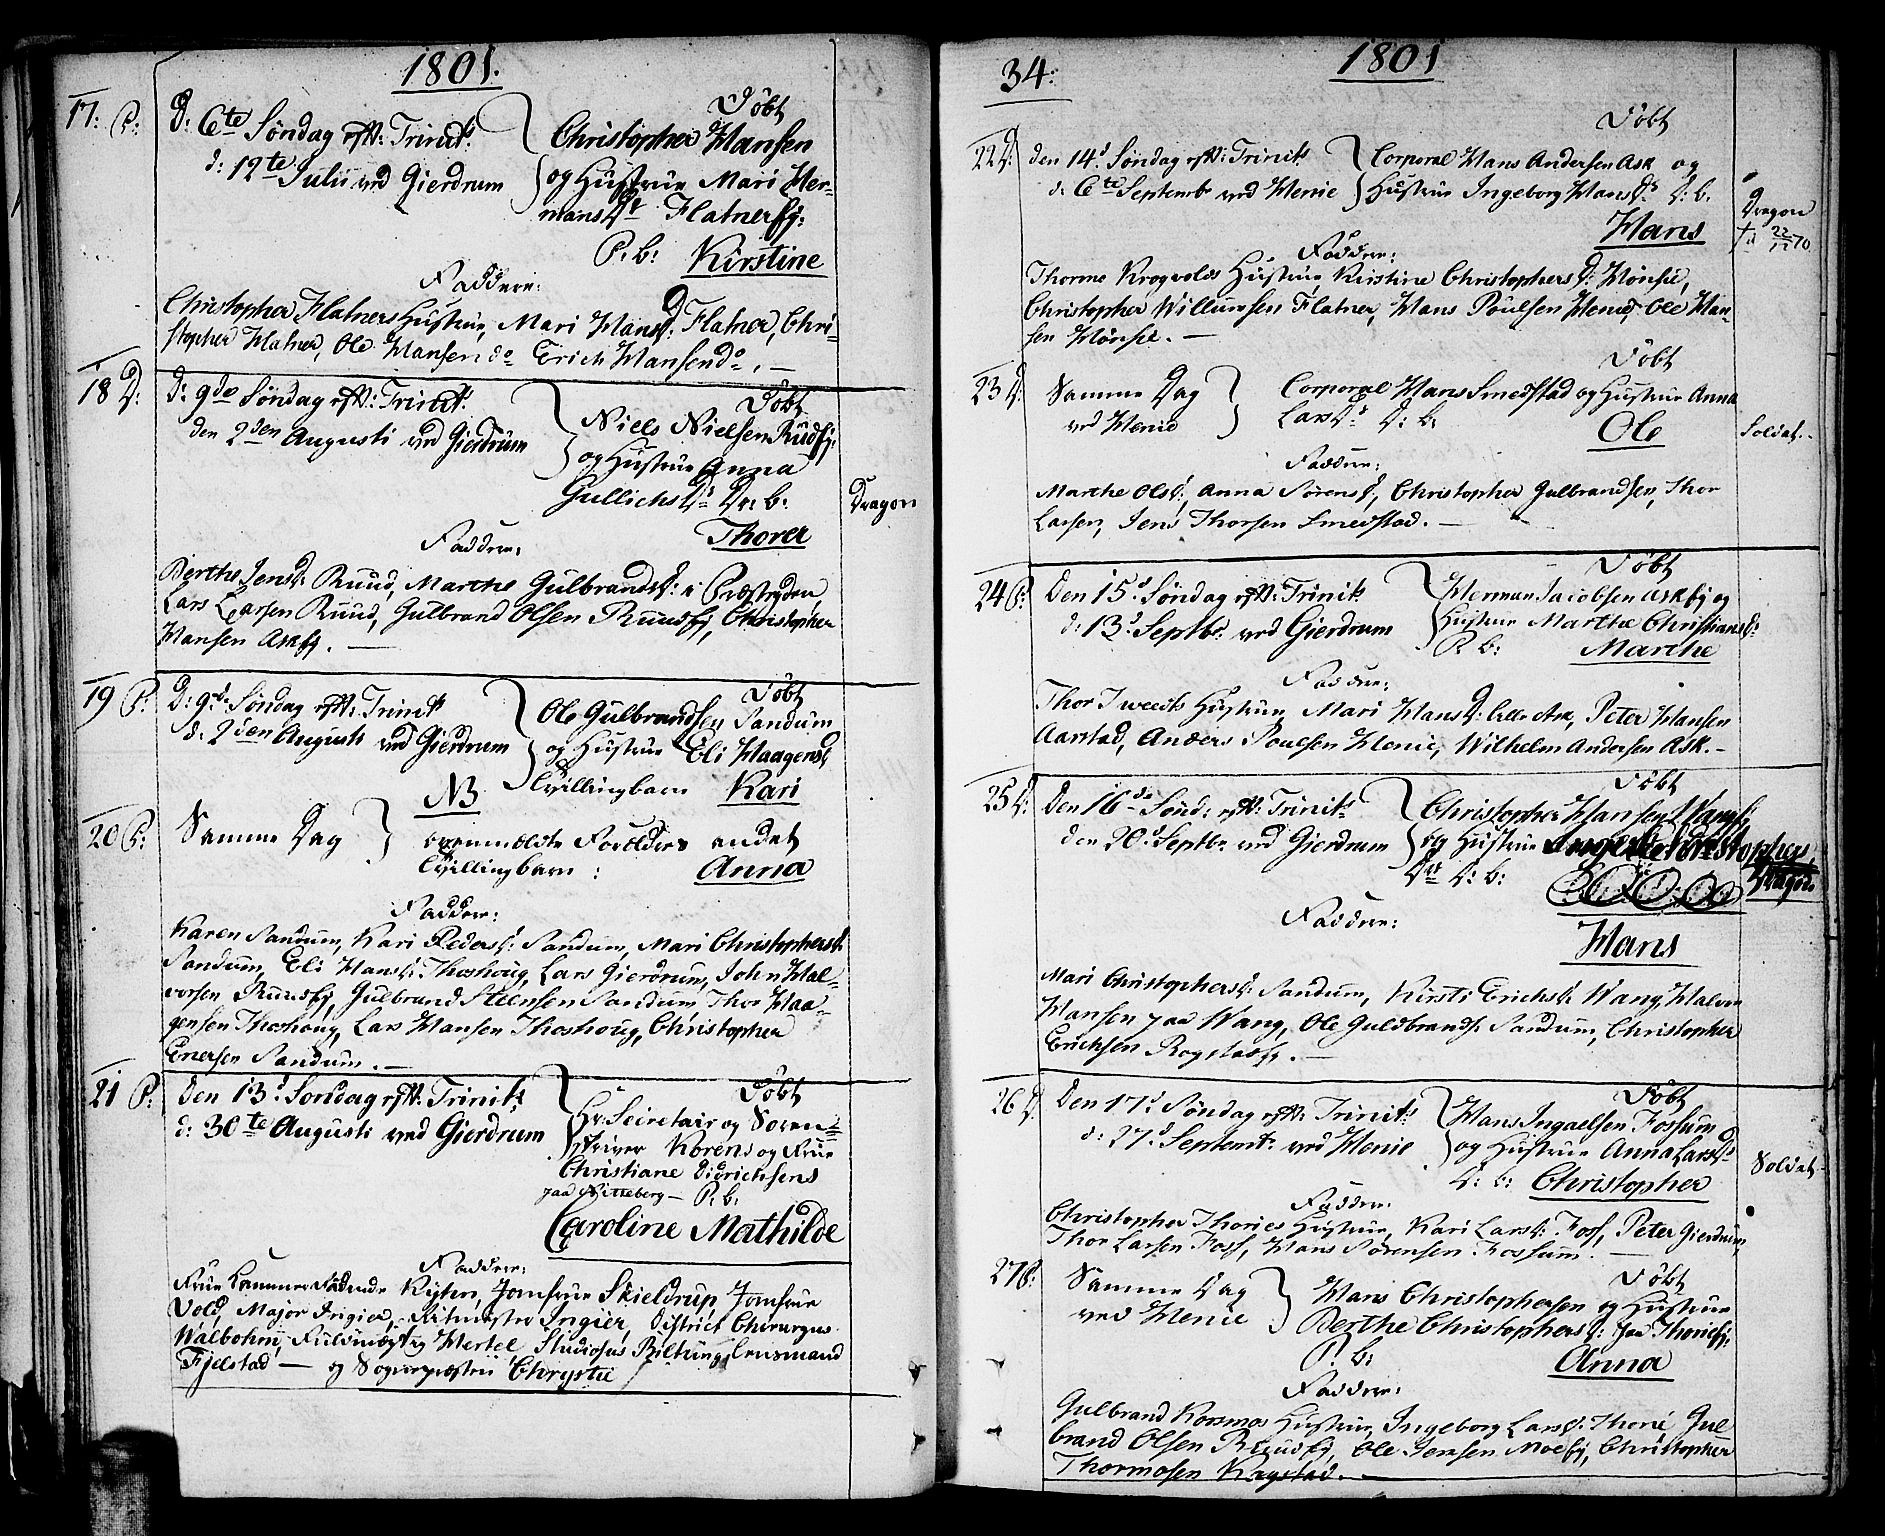 1801.
17: P:
D: 6te Søndag efter: Trinit:
d: 12te Julii ved Gierdrum
Døbt
Christopher Hansen
og Hustrue Mari Her-
mansDr Flatnerfj:
P: b: Kirstine
Faddere:
Christopher Flatners Hustrue, Mari HansD: Flatner, Chri-
stopher Flatner, Ole Hansen do Erich Hansen do. —
18 D:
D: 9de Søndag efter: Trinit:
den 2den Augusti ved Gierdrum
Døbt
Niels Nielsen Rudfj:
og Hustrue Anna
GullichsDr Dr: b:
Thorer
Dragon
Faddere:
Berthe JensD: Ruud, Marthe GulbrandsD: i
Lars Larsen Ruud, Gulbrand Olsen Ruudfj, Christopher
Hansen Askfj. —
19 P:
D: 9de Søndag efter: Trinit:
d. 2den Augusti ved Gierdrum
Døbt
Ole Gulbrandsen Sandum
og Hustrue Eli HaagensD:
Tvillingbarn Kari
NB
20 P:
Samme Dag
ovenmeldte Forældres andet
Tvillingbarn: Anna
Faddere:
Karen Sandum, Kari PedersD: Sandum, Mari ChristophersD:
Sandum, Eli HansD: Thoshoug, Lars Gierdrum, John Hal-
vorsen Ruudfj, Gulbrand Steensen Sandum, Thor Haa-
gensen Thoshoug, Lars Hansen Thoshoug, Christopher
Enersen Sandum. —
21 P:
Den 13d Søndag efter: Trinit:
d: 30te Augusti ved Gierdrum
Døbt
Hr: Secretair og Soren-
skriver Korens og Frue
Christiane Didrichsens
paa Nitteberg — P: b:
Caroline Mathilde
Faddere:
Frue Cammerraadinde Rytter, Jomfrue Skieldrup, Jomfrue
Vold, Major Irigier, Ritmester Ingier, District Chirurgus
Walbohm, Fuldmægtig Hertel, Studiosus Biltung, Lensmand
Fjelstad — og Sognepræsten Chrystie
34:
1801
22 D:
den 14d Søndag efter: Trinit:
d. 6te Septembr ved Henie
Døbt
Corporal Hans Andersen Ask og
Hustrue Ingeborg HansDr. D: b.
Hans
Dragon
† d 22/12 70
Faddere:
Thorme Krogvolds Hustrue, Kirstine ChristophersD: Hønsie,
Christopher Willumsen Flatner, Hans Poulsen Henie, Ole Han-
sen Hønsie. —
23 D:
Samme Dag
ved Henie
Døbt
Corporal Hans Smedstad og Hustrue Anna
LarsDr D: b:
Ole
Soldat.
Faddere:
Marthe OlsD:, Anna SørensD:, Christopher Gulbrandsen, Thor
Larsen, Jens Thorsen Smedstad. —
24 P:
Den 15d Søndag efter: Trinit:
d: 13d Septbr. ved Gierdrum
Døbt
Herman Jacobsen Askfj og
Hustrue Marthe ChristiansD:
P. b: Marthe
Faddere:
Thor Tweets Hustrue, Mari HansD: Lille Ask, Peter Hansen
Aarstad, Anders Poulsen Henie, Wilhelm Andersen Ask. —
25 D:
Den 16de Sønd: efter: Trinit:
den 20d Septbr: ved Gierdrum
Døbt
Christopher Hansen Wangfj
og Hustrue Christophers
Dr D: b:
Dragon
Hans
Faddere:
Mari ChristophersD: Sandum, Kirsti ErichsD: Wang, Halvor
Hansen paa Wang, Ole Guldbrands: Sandum, Christopher
Erichsen Rogstadfj. —
26 D:
Den 17d Søndag efter: Trinit:
d: 27d Septembr: ved Henie
Døbt
Hans Ingaelsen Fossum
og Hustrue Anna LarsDr
D: b: Christopher
Soldat
Faddere:
Christopher Thories Hustrue, Kari LarsD: Foss, Peter Gierdrum
Thor Larsen Foss, Hans Sørensen Fossum. —
27 P:
Samme Dag
ved Henie
Døbt
Hans Christophersen og Hustrue
Berthe ChristophersD: paa Thoriefj:
P: b: Anna
Faddere:
Gulbrand Kosmos Hustrue, Ingeborg LarsD: Thorie, Gul-
brand Olsen Ruudfj, Ole Jensen Moefj, Christopher
Thormosen Ragstad. —